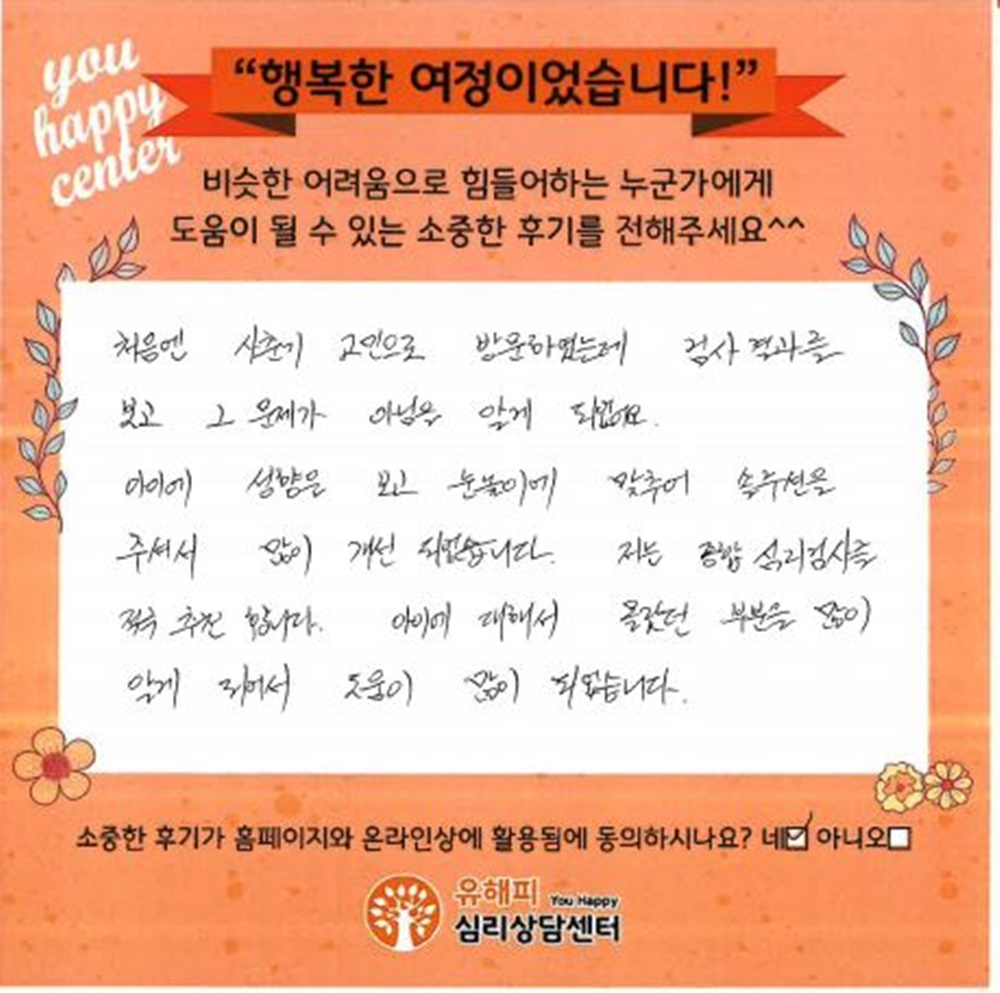 you
happy
center
“행복한 여정이었습니다!”
비슷한 어려움으로 힘들어하는 누군가에게
도움이 될 수 있는 소중한 후기를 전해주세요^^
처음엔 사춘기 고민으로 방문하였는데 검사 결과를
보고 그 문제가 아님을 알게 되었어요.
아이에 성향을 보고 눈높이에 맞추어 솔루션을
주셔서 많이 개선 되었습니다. 저는 종합 심리검사를
적극 추천 합니다. 아이에 대해서 몰랐던 부분을 많이
알게 되어서 도움이 많이 되었습니다.
소중한 후기가 홈페이지와 온라인상에 활용됨에 동의하시나요? 네☑ 아니오☐
유해피 You Happy
심리상담센터